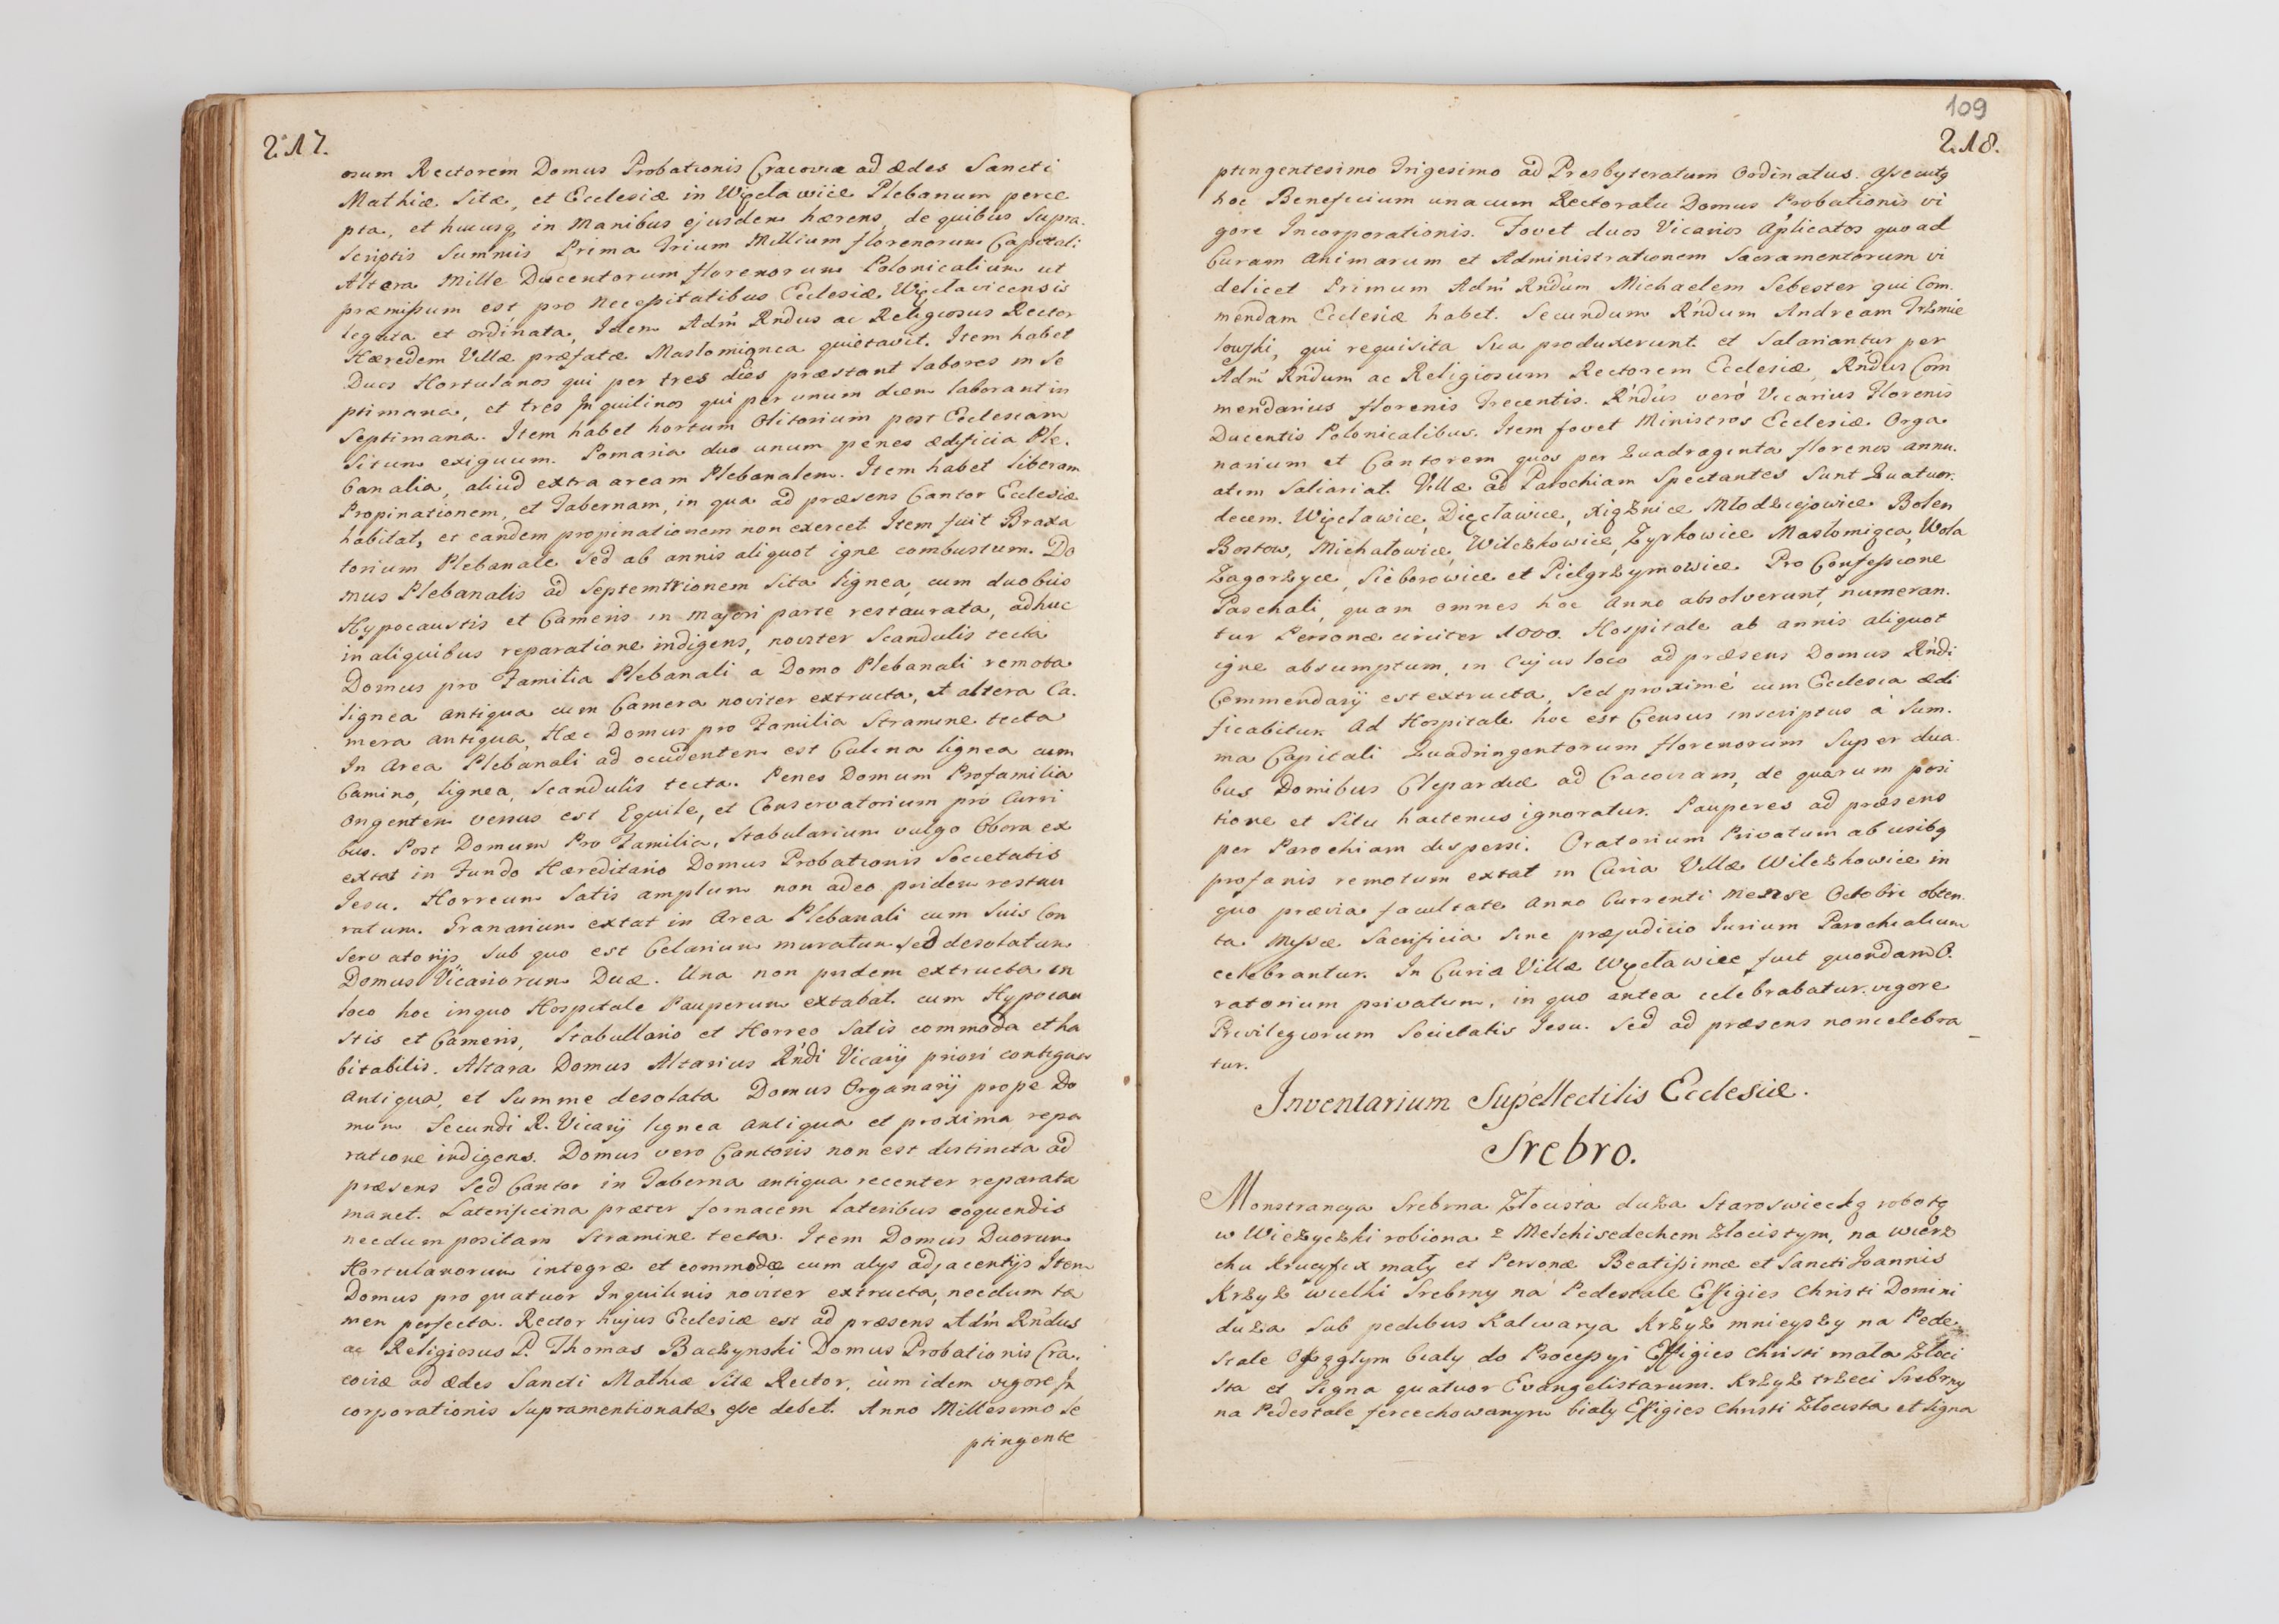 217.
osum Rectorem Domus Probationis Cracoviæ ad Ædes Sancti
Mathiæ Sitæ, et Ecclesiæ in Więcławice Plebanum perce
pta, et hucusq in Manibus ejusdem hærens, de quibus Supra
Scriptis Summis Prima Trium Millium florenorum Capitali
Altera Mille Ducentorum florenorum Polonicalium ut
præmissum est pro Necessitatibus Ecclesiæ Więclavicensis
legata et ordinata, Idem Adm Rndus ac Religiosus Rector
Hæredem Villæ præfatæ Masłomiąnca quietavit. Item habet
Duos Hortulanos qui per tres dies præstant labores in Se
ptimana, et tres Inquilinos qui per unum diem laborant in
Septimana. Item habet hortum Olitorium post Ecclesiam
Situm exiguum. Pomaria duo unum penes ædificia Ple.
banalia, aliud extra aream Plebanalem. Item habet liberam
Propinationem, et Tabernam, in qua ad præsens Cantor Ecclesiæ
habitat, et eandem propinationem non exercet Item fuit Braxa
torium Plebanale Sed ab annis aliquot igne combustum. Do
mus Plebanalis ad Septemtrionem Sita lignea, cum duobus
Hypocaustis et Cameris in majori parte restaurata, adhuc
in aliquibus reparatione indigens, noviter Scandulis tecta
Domus pro Familia Plebanali a Domo Plebanali remota
lignea antiqua cum Camera noviter extructa, et altera Ca.
mera antiqua, Hæc Domus pro Familia Stramine tecta
In Area Plebanali ad occidentem est Culina lignea cum
Camino, lignea, Scandulis tecta. Penes Domum Profamilia
Ongentem versus est Equile, et Conservatorium pro Curri
bus. Post Domum Pro Familia, Stabularium vulgo Obora ex
extat in Fundo Hæreditario Domus Probationis Societatis
Jesu. Horreum Satis amplum non adeo pridem restau
ratum. Granarium extat in Area Plebanali cum Suis Con
servatorijs, Sub quo est Celarium muratum Sed desolatum
Domus Vicariorum Duæ. Una non pridem extructa in
loco hoc inquo Hospitale Pauperum extabat cum Hypocau
stis et Cameris, Stabullario et Horreo Satis commoda et ha
bitabilis. Altara Domus Altarius Rndi Vicarij priori contigua
antiqua, et Summe desolata Domus Organarij prope Do
mum Secundi R. Vicarij lignea antiqua et proxima repa
ratione indigens. Domus vero Cantoris non est distincta ad
præsens Sed Cantor in Taberna antiqua recenter reparata
manet. Laterificina præter fornacem lateribus coquendis
needum positam Stramine tecta. Item Domus Duorum
Hortulanorum integræ et commodæ cum alys adjacentijs Item
Domus pro quatuor Inquilinis noviter extructa, needum ta
men perfecta. Rector hujus Ecclesiæ est ad præsens Adm Rndus
ac Religiosus P. Thomas Baczynski Domus Probationis Cra.
coviæ ad ædes Sancti Mathiæ Sitæ Rector, cùm idem vigore In
corporationis Supramentionatæ esse debet. Anno Millesimo Se
ptingente
109
218.
ptingentesimo Trigesimo ad Presbyteratum Ordinatus. assecutq
hoc Beneficium unacum Rectoratu Domus Probationis vi
gore Incorporationis. Fovet duos Vicarios aplicatos quoad
Curam animarum et Administrationem Sacramentorum vi
delicet Primum Adm Rndum Michaelem Sebester qui Com.
mendam Ecclesiæ habet. Secundum Rndum Andream Trzmie
lowski, qui requisita Sua produxerunt et Salariantur per
Adm Rndum ac Religiosum Rectorem Ecclesiæ, Rndus Com
mendarius florenis Trecentis. Rndus verò Vicarius Florenis
Ducentis Polonicalibus. Item fovet Ministros Ecclesiæ Orga
narium et Cantorem quos per Quadraginta florenos annu.
atim Saliariat. Villæ ad Parochiam Spectantes Sunt Quatuor.
decem. Więcławice, Dięcławice, Xiąznice Młodziejowice Bolen
Bostow, Michałowice, Wilczkowice, Zyrkowice Masłomiąca, Wola
Zagorzyce, Sieborowice et Pielgrzymowice. Pro Confessione
Paschali, quam omnes hoc Anno absolverunt, numeran.
tur Personæ circiter 1000. Hospitale ab annis aliquot
igne absumptum, in cujus loco ad præsens Domus Rndi
Commendarij est extructa, Sed proximè cum Ecclesia ædi
ficabitur. Ad Hospitale hoc est Census inscriptus à Sum.
ma Capitali Quadringentorum florenorum Super dua
bus Domibus Clepardiæ ad Cracoviam, de quarum posi
tione et Situ hactenus ignoratur. Pauperes ad præsens
per Parochiam dispersi. Oratorium Privatum ab usibq
profanis remotum extat in Curia Villæ Wilczkowice in
quo prævia facultate Anno Currenti Mense Octobri obten.
ta Missæ Sacrificia Sine præjudicio Jurium Parochialium
celebrantur. In Curia Villæ Więcławice fuit quondam O.
ratorium privatum, in quo antea celebrabatur vigore
Privilegiorum Societatis Jesu. Sed ad præsens noncelebra
tur.
Inventarium Supellectilis Ecclesiæ.
Srebro.
Monstrancya Srebrna Złocista duza Staroswiecką robotą
w Wiezyczki robiona z Melchisedechem Złocistym, na wierz
chu Krucyfix mały et Personæ Beatissimæ et Sancti Joannis
Krzyz wielki Srebrny na Pedestale Effigies Christi Domini
duza Sub pedibus Kalwarya Krzyz mnieyszy na Pede
stale Okrągłym biały do Processyi Effigies Christi mała Złoci
sta et Signa quatuor Evangelistarum. Krzyz trzeci Srebrny
na Pedestale fercechowanym biały Effigies Christi Złocista et Signa